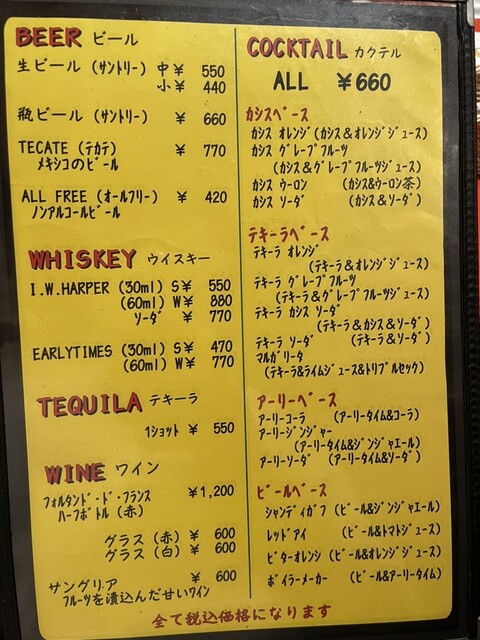 BEER ビール
生ビール (サントリー) 中￥ 550
小￥ 440
瓶ビール (サントリー) ￥ 660
TECATE (テカテ) ￥ 770
メキシコのビール
ALL FREE (オールフリー) ￥ 420
ノンアルコールビール
WHISKEY ウイスキー
I.W.HARPER (30ml) S￥ 550
(60ml) W￥ 880
ソーダ ￥ 770
EARLYTIMES (30ml) S￥ 470
(60ml) W￥ 770
TEQUILA テキーラ
1ショット ￥ 550
WINE ワイン
フォルタンド・ド・フランス ￥1,200
ハーフボトル (赤)
グラス (赤) ￥ 600
グラス (白) ￥ 600
サングリア ￥ 600
フルーツを漬込んだせいワイン
COCKTAIL カクテル
ALL ￥660
カシスベース
カシス オレンジ(カシス＆オレンジジュース)
カシス グレープフルーツ
(カシス＆グレープフルーツジュース)
カシス ウーロン (カシス&ウーロン茶)
カシス ソーダ (カシス＆ソーダ)
テキーラベース
テキーラ オレンジ
(テキーラ＆オレンジジュース)
テキーラ グレープフルーツ
(テキーラ＆グレープフルーツジュース)
テキーラ カシス ソーダ
(テキーラ＆カシス＆ソーダ)
テキーラ ソーダ (テキーラ＆ソーダ)
マルガリータ
(テキーラ&ライムジュース&トリプルセック)
アーリーベース
アーリーコーラ (アーリータイム&コーラ)
アーリージンジャー
(アーリータイム&ジンジャエール)
アーリーソーダ (アーリータイム&ソーダ)
ビールベース
シャンディガフ (ビール&ジンジャエール)
レッドアイ (ビール&トマトジュース)
ビターオレンジ (ビール&オレンジジュース)
ボイラーメーカー (ビール&アーリータイム)
全て税込価格になります